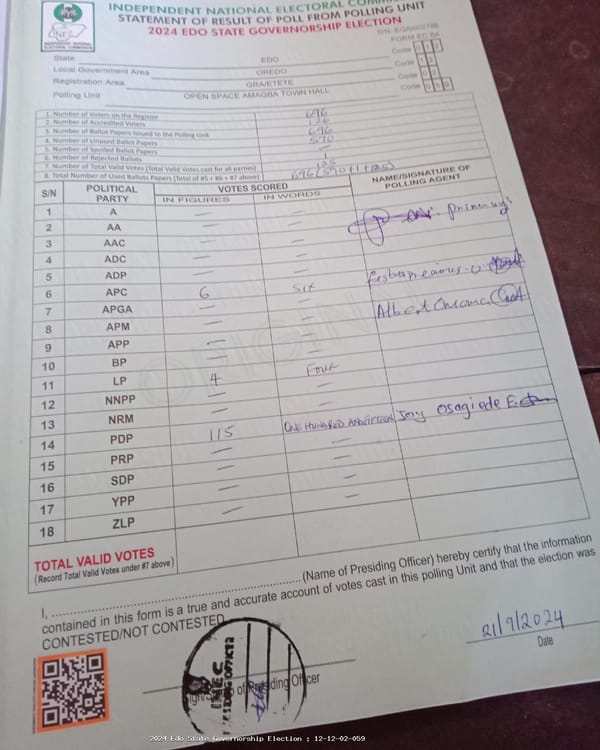 INDEPENDENT NATIONAL ELECTORAL COMMI
STATEMENT OF RESULT OF POLL FROM POLLING UNIT
2024 EDO STATE GOVERNORSHIP ELECTION
FORM EC 8A
State EDO Code
Local Government Area OREDO Code
Registration Area GRA/ETETE Code
Polling Unit OPEN SPACE AMAGBA TOWN HALL Code
1. Number of Voters on the Register 696
2. Number of Accredited Voters
3. Number of Ballot Papers Issued to the Polling Unit 696
4. Number of Unused Ballot Papers 570
5. Number of Spoiled Ballot Papers
6. Number of Rejected Ballots 1
7. Number of Total Valid Votes (Total Valid Votes cast for all parties) 125
8. Total Number of Used Ballot Papers (Total of #5 + #6 + #7 above) 696 (570+1+125)
S/N POLITICAL PARTY VOTES SCORED IN FIGURES IN WORDS NAME/SIGNATURE OF POLLING AGENT
1 A — —
2 AA — —
3 AAC — —
4 ADC — —
5 ADP — —
6 APC 6 SIX
7 APGA — —
8 APM — —
9 APP — —
10 BP — —
11 LP 4 FOUR
12 NNPP — —
13 NRM — —
14 PDP 115 ONE HUNDRED AND FIFTEEN Joey Osagiede E.
15 PRP — —
16 SDP — —
17 YPP — —
18 ZLP — —
TOTAL VALID VOTES
(Record Total Valid Votes under #7 above)
I, (Name of Presiding Officer) hereby certify that the information
contained in this form is a true and accurate account of votes cast in this polling Unit and that the election was
CONTESTED/NOT CONTESTED
21/9/2024
Date
of Presiding Officer
INEC
PRESIDING OFFICER
2024 Edo State Governorship Election : 12-12-02-059